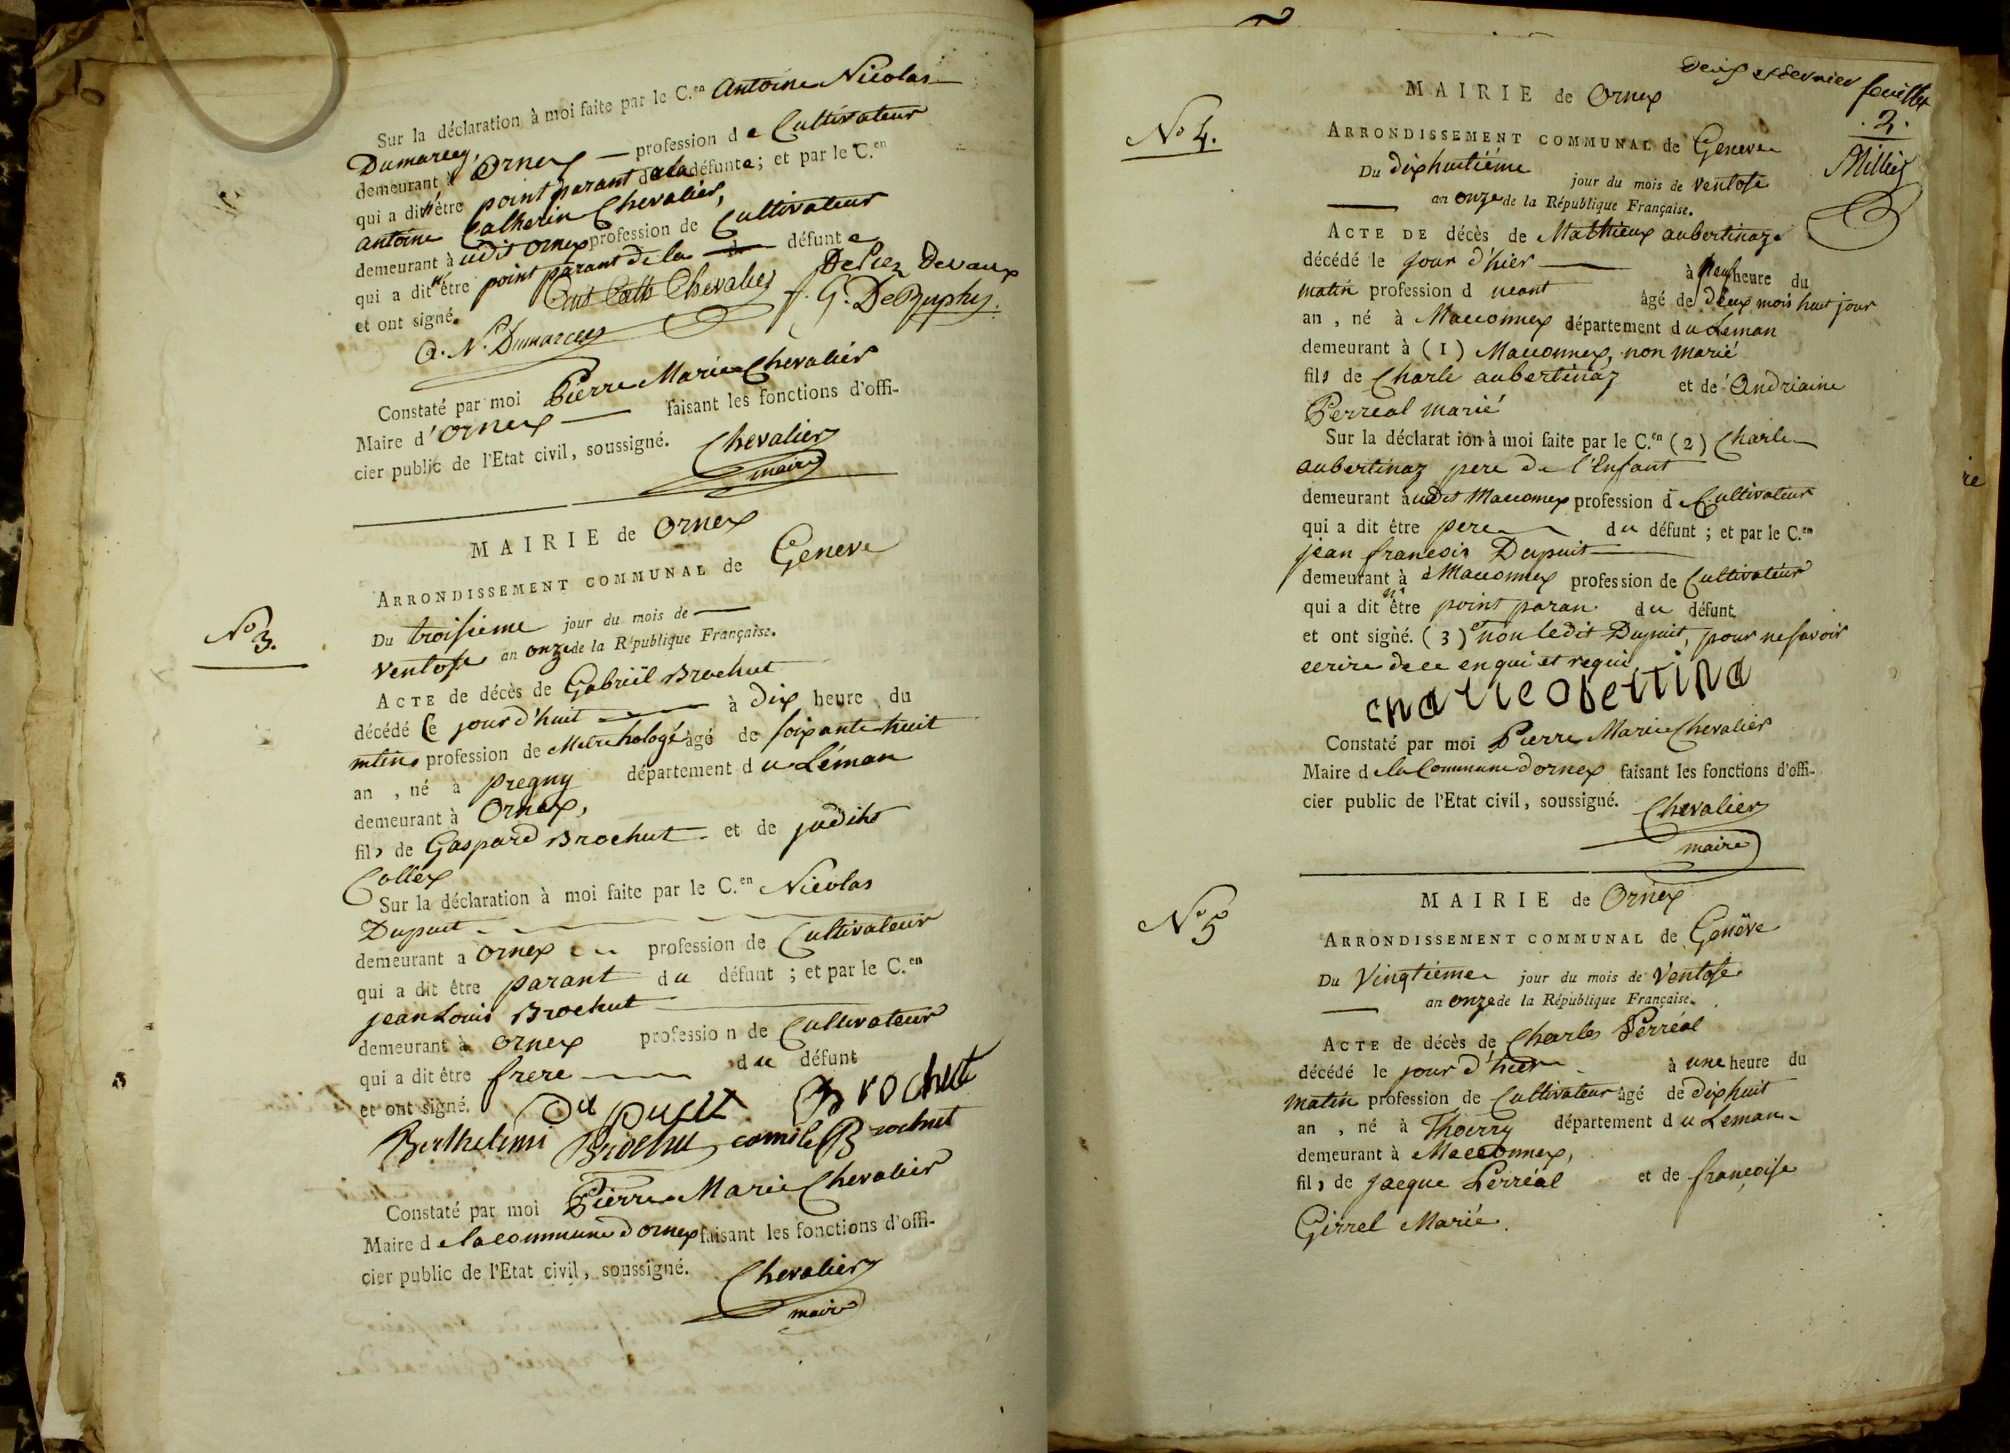 Sur la déclaration à moi faite par le C.en Antoine Nicolas
Dumarcey,
demeurant à Ornex profession de Cultivateur
qui a dit n'être point parant de la défunte ; et par le C.en
antoine Catherin Chevalier,
demeurant à udit Ornex profession de Cultivateur
qui a dit n'être point parant de la défunte
et ont signé.
Chevalier
DePrez Devaux
A. N. Dumarcey
Constaté par moi Pierre Marie Chevalier
Maire d'ornex faisant les fonctions d'offi-
cier public de l'Etat civil, soussigné. Chevalier
maire
MAIRIE de Ornex
ARRONDISSEMENT COMMUNAL de Geneve
No 3.
Du troisieme jour du mois de
ventose an onze de la République Française.
ACTE de décès de Gabriël Brochut
décédé le jourd'huit à dix heure du
mtin profession de Metrehologé âgé de soixante huit
an , né à pregny département du Léman
demeurant à Ornex,
fils de Gaspard Brochut et de judith
Collex
Sur la déclaration à moi faite par le C.en Nicolas
Dupuit
demeurant a ornex profession de Cultivateur
qui a dit être parant du défunt ; et par le C.en
jean Louis Brochut
demeurant à ornex profession de Cultivateur
qui a dit être frere du défunt
et ont signé. Du puit Brochut
Berthelimi Brochut Brochut
Constaté par moi Pierre Marie Chevalier
Maire de la commune d'ornex faisant les fonctions d'offi-
cier public de l'Etat civil, soussigné. Chevalier
maire
Deux et dernier feuillet
. 2.
MAIRIE de Ornex
No 4.
ARRONDISSEMENT COMMUNAL de Geneve
Du dixhuitiéme jour du mois de ventose
an onze de la République Française.
ACTE DE décès de Matthieux aubertinaz
décédé le jour d'hier à neuf heure du
matin profession d neant âgé de deux mois huit jour
an , né à Maconnex département du Leman
demeurant à (1) Maconnex, non marié
fils de Charle aubertinaz et de Andriaine
Perreal marié
Sur la déclaration à moi faite par le C.en (2) Charle
aubertinaz pere de l'Enfant
demeurant audit Maconnex profession de Cultivateur
qui a dit être pere du défunt ; et par le C.en
jean francois Dupuit
demeurant à à Maconnex profession de Cultivateur
qui a dit n'être point paran du défunt
et ont signé. (3) et non ledit Dupuit, pour ne savoir
ecrire de ce enqui et requi
charleobertina
Constaté par moi Pierre Marie Chevalier
Maire de la Commune d'ornex faisant les fonctions d'offi-
cier public de l'Etat civil, soussigné. Chevalier
maire
MAIRIE de Ornex
No 5
ARRONDISSEMENT COMMUNAL de Genève
Du Vingtième jour du mois de Ventose
an onze de la République Française.
ACTE de décès de Charles Perréal
décédé le jour d'hier à une heure du
matin profession de Cultivateur âgé de dixhuit
an , né à Thoirry département du Leman
demeurant à Macconnex,
fils de Jacque Perréal et de françoise
Girrel Marié.